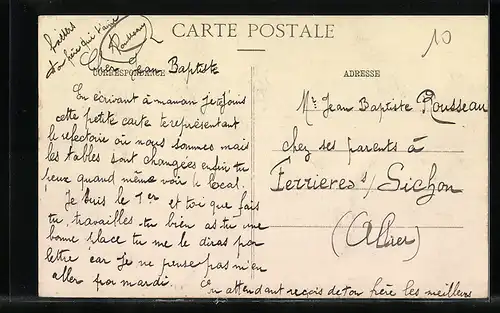 CARTE POSTALE
10
baisers
ton frère qui t'aime
Rousseau
CORRESPONDANCE
ADRESSE
Cher Jean Baptiste
En écrivant à maman je te joins
cette petite carte te représentant
le refectoire où nous sommes mais
les tables sont changées enfin tu
peux quand même voir le local.
Je suis le 1er et toi que fais
tu, travailles-tu bien as-tu une
bonne place tu me le diras par
lettre car je ne pense pas m'en
aller par mardi.
En attendant reçois de ton frère les meilleurs
Mr Jean Baptiste Rousseau
chez ses parents à
Ferrieres s/ Sichon
(Allier)